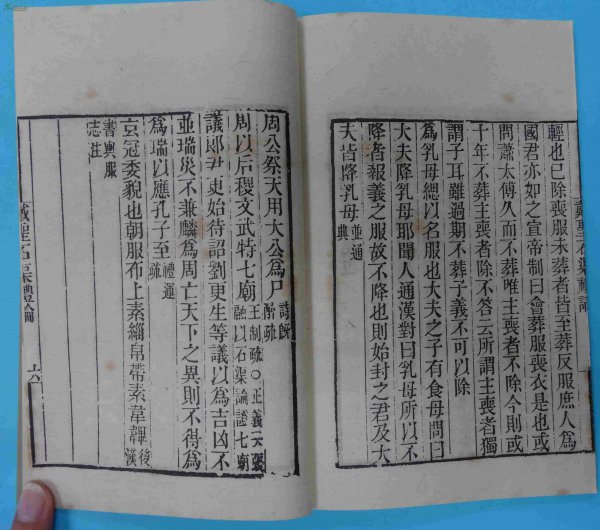 輕也已除喪服未葬者皆至葬反服庶人爲
國君亦如之宣帝制曰會葬服喪衣是也或
問蕭太傅久而不葬唯主喪者不除今則或
十年不葬主喪者除不答云所謂主喪者獨
謂子耳雖過期不葬子義不可以除
爲乳母緦以名服也大夫之子有食母問曰
大夫降乳母耶聞人通漢對曰乳母所以不
降者報義之服故不降也則始封之君及大
夫皆降乳母 並通典
戴聖石渠禮論
周公祭天用太公爲尸 詩既醉疏
周以后稷文武特七廟 王制疏○正義云張融以石渠論證七廟
議郎尹更始待詔劉更生等議以爲吉凶不
並瑞災不兼麟爲周亡天下之異則不得爲
爲瑞以應孔子至 禮運疏
玄冠委貌也朝服布上素緇帛帶素韋韠 後漢
書輿服志注
戴聖石渠禮論